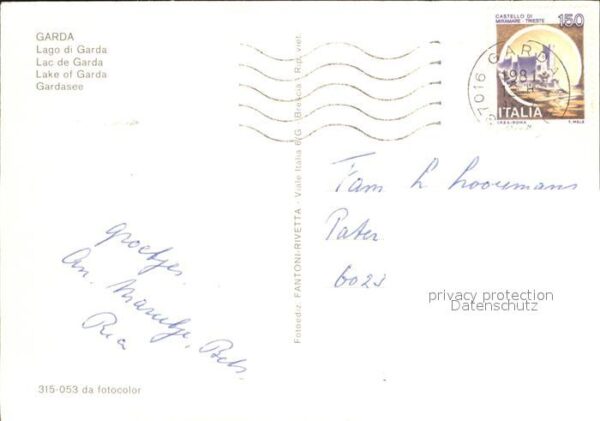 GARDA
Lago di Garda
Lac de Garda
Lake of Garda
Gardasee
CASTELLO DI
MIRAMARE - TRIESTE
150
ITALIA
37016 GARDA
198
Fam L Looymans
Pater
6023
privacy protection
Datenschutz
groetjes.
An. Marietje, Bets
Ria
Fotoediz. FANTONI-RIVETTA - Viale Italia 6/G - Brescia - Rip. viet.
315-053 da fotocolor